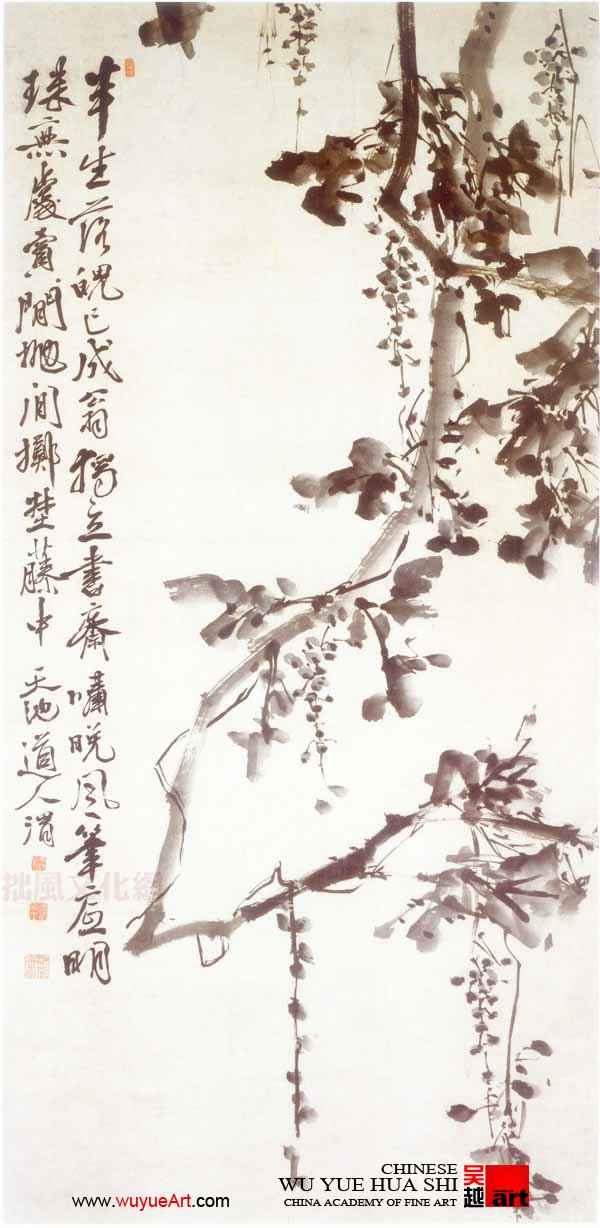 半生落魄已成翁獨立書齋嘯晚風筆底明
珠無處賣閒抛閒擲埜藤中 天池道人渭
拙風文化網
www.wuyueArt.com
CHINESE
WU YUE HUA SHI
CHINA ACADEMY OF FINE ART
吴越 art